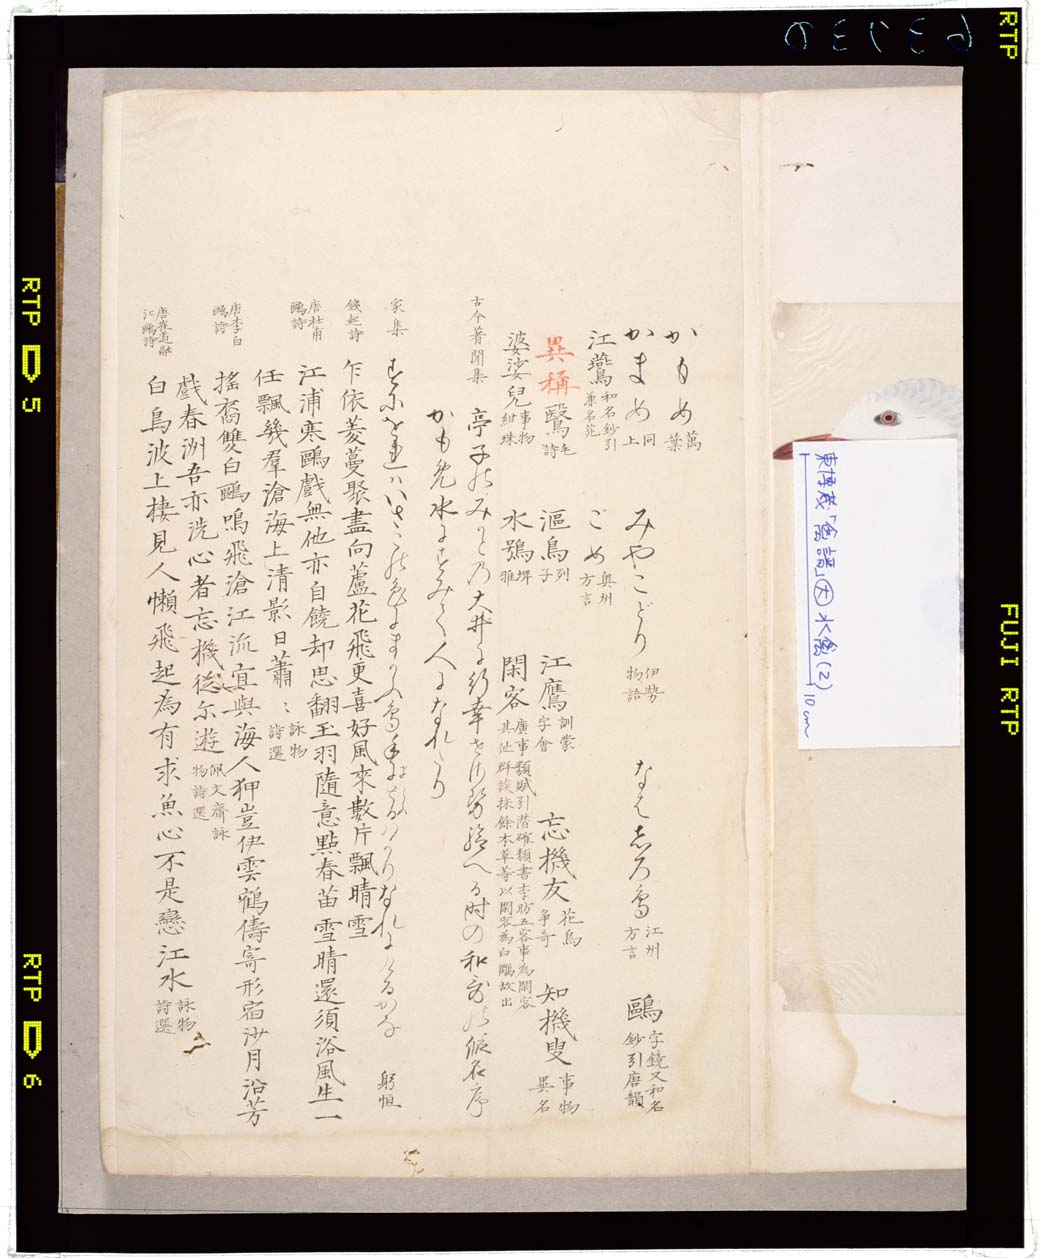 かもめ 萬葉
みやこどり 伊勢物語
鷗 字鏡又和名鈔引唐韻
かまめ 同上
ごめ 奥州方言
江州方言
江鷰 和名鈔引兼名苑
異稱
鷖 毛詩
漚鳥 列子
江鷹 訓蒙字會
忘機友 花鳥争奇
知機叟 事物異名
婆娑兒 事物紺珠
水鴞 埤雅
閑客 廣事類賦引潜確類書李昉五客事為閑客
其他群談採餘本草等以閑客為白鷴故出
古今著聞集
亭子のみかどの大井に行幸
時の和哥の假名序
かもめ水にすみて人になれたり
家集
躬恒
錢起詩
乍依菱蔓聚盡向蘆花飛更喜好風來數片飄晴雪
唐杜甫鷗詩
江浦寒鷗戲無他亦自饒却思翻玉羽隨意點春苗雪晴還須浴風生一
任飄幾羣滄海上清影日蕭〻 詠物詩選
唐李白鷗詩
搖裔雙白鷗鳴飛滄江流宜與海人狎豈伊雲鶴儔寄形宿沙月沿芳
戲春洲吾亦洗心者忘機從尓遊 佩文齋詠物詩選
唐崔道融江鷗詩
白鳥波上棲見人懶飛起為有求魚心不是戀江水 詠物詩選
東博蔵「禽譜」水禽(2)
10cm
RTP
FUJI RTP
RTP 5
RTP 6